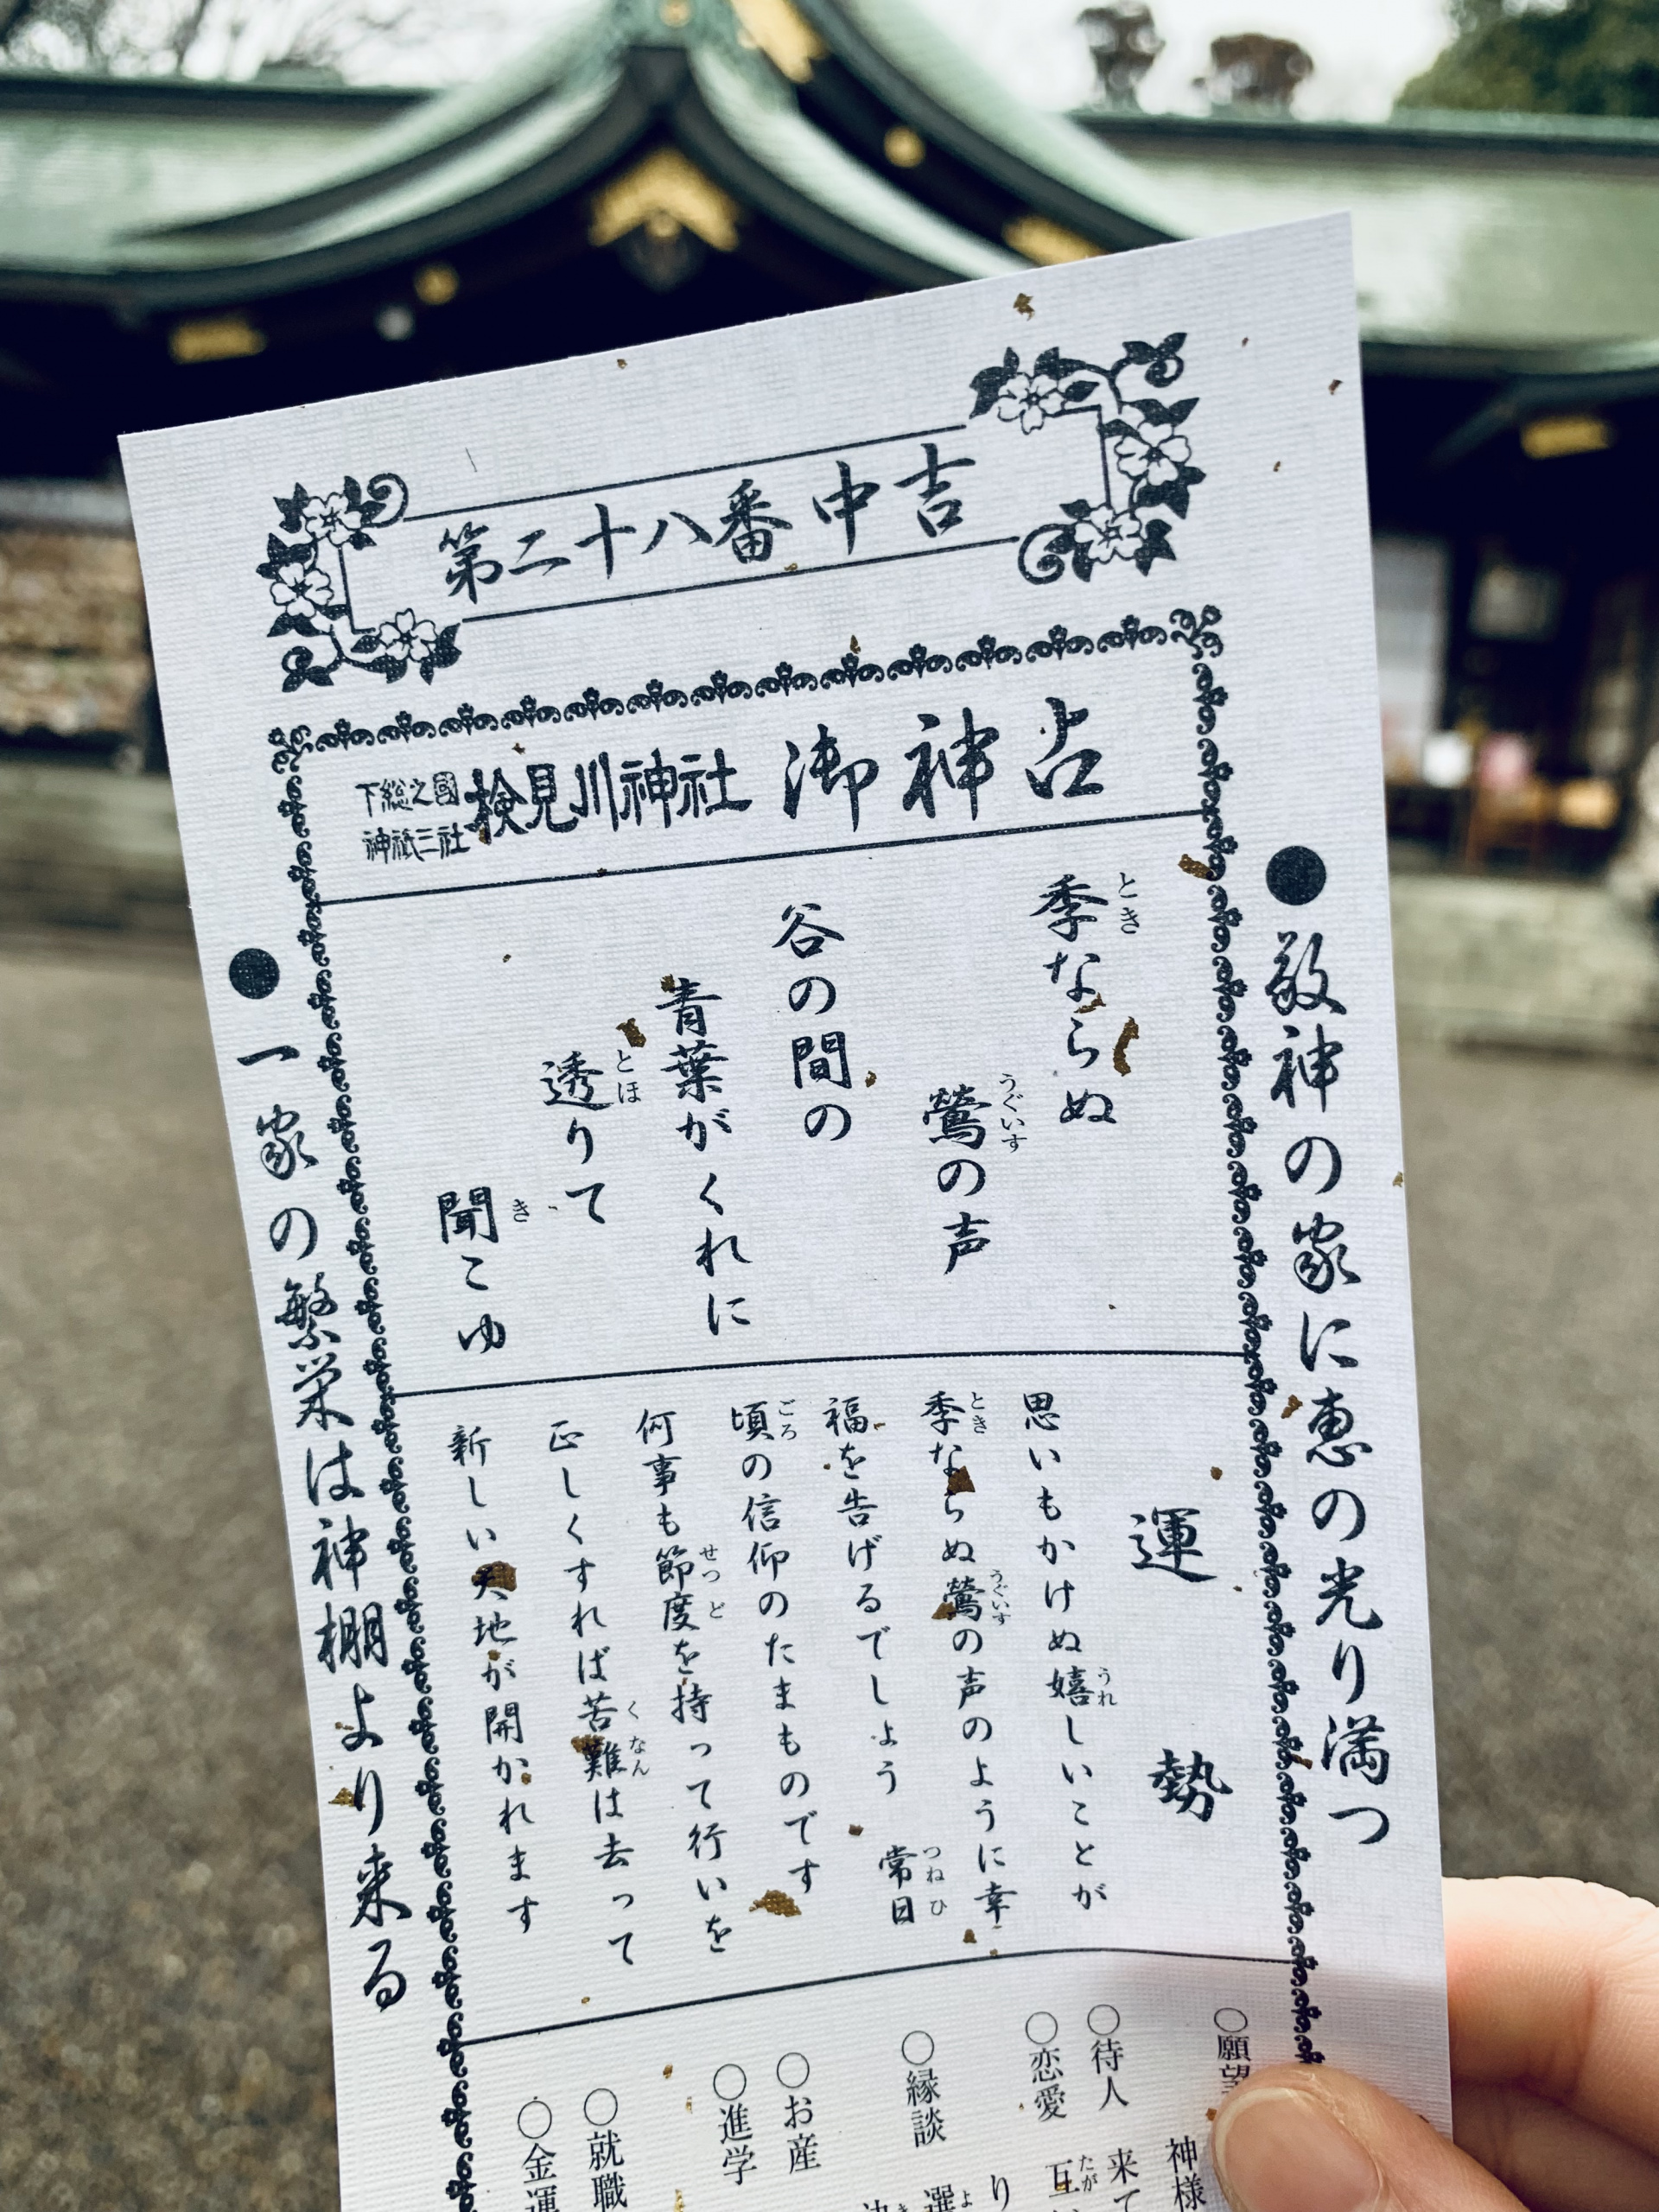 第二十八番 中吉
下総之國
神祇三社
検見川神社 御神占
●敬神の家に恵の光り満つ
季ならぬ
とき
鶯の声
うぐいす
谷の間の
青葉がくれに
透りて
とほ
聞こゆ
き
運勢
思いもかけぬ嬉しいことが
うれ
季ならぬ鶯の声のように幸
とき
うぐいす
福を告げるでしょう 常日
つねひ
頃の信仰のたまものです
ごろ
何事も節度を持って行いを
せつど
正しくすれば苦難は去って
くなん
新しい天地が開かれます
●一家の繁栄は神棚より来る
○願望
神様
○待人
来て
○恋愛
互
たが
○縁談
り
選
よ
○お産
○進学
○就職
○金運